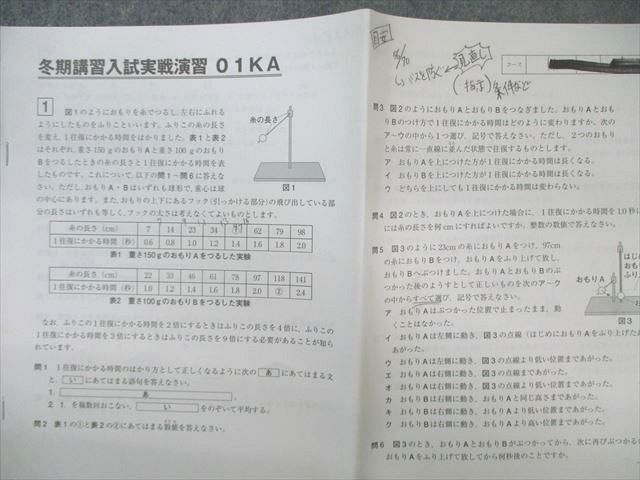 冬期講習入試実戦演習 01KA
1
図1のようにおもりを糸でつるし,左右にふれる
ようにしたものをふりこといいます。ふりこの糸の長さ
を変え,1往復にかかる時間をはかりました。表1と表2
はそれぞれ,重さ150gのおもりAと重さ100gのおもり
Bをつるしたときの糸の長さと1往復にかかる時間を表
したものです。これについて,以下の問1～問6に答えな
さい。ただし,おもりA・Bはいずれも球形で,重心は球
の中心にあります。また,おもりの上下にあるフック(引っかける部分)の飛び出している部
分の長さはいずれも等しく,フックの太さは考えなくてよいものとします。
糸の長さ
図1
糸の長さ(cm) 7 14 23 34 62 79 98
1往復にかかる時間(秒) 0.6 0.8 1.0 1.2 1.4 1.6 1.8 2.0
表1 重さ150gのおもりAをつるした実験
糸の長さ(cm) 22 33 46 61 78 97 118 141
1往復にかかる時間(秒) 1.0 1.2 1.4 1.6 1.8 2.0 ② 2.4
表2 重さ100gのおもりBをつるした実験
なお,ふりこの1往復にかかる時間を2倍にするときはふりこの長さを4倍に,ふりこの
1往復にかかる時間を3倍にするときはふりこの長さを9倍にする必要があることが知ら
れています。
問1 1往復にかかる時間のはかり方として正しくなるように次の あ にあてはまる文
と, い にあてはまる語句を答えなさい。
1. あ
2. 1.を複数回おこない, い をのぞいて平均する。
問2 表1の①と表2の②にあてはまる数値を答えなさい。
目安
見直し
コース
問3 図2のようにおもりAとおもりBをつなぎました。おもりAとおも
りBのつけ方で1往復にかかる時間はどのように変わりますか。次の
ア～ウの中から1つ選び,記号で答えなさい。ただし,2つのおもり
と糸は常に一直線に並んだ状態で往復するものとします。
ア おもりAを上につけた方が1往復にかかる時間は長くなる。
イ おもりBを上につけた方が1往復にかかる時間は長くなる。
ウ どちらを上にしても1往復にかかる時間は変わらない。
問4 図2のとき,おもりAを上につけた場合に,1往復にかかる時間を1.0秒に
には糸の長さを何cmにすればよいですか。整数の数値で答えなさい。
問5 図3のように23cmの糸におもりAをつけ,97cm
の糸におもりBをつけ,おもりAをふり上げて放し,
おもりBへぶつけました。おもりAとおもりBのぶ
つかった後のようすとして正しいものを次のア～ク
の中からすべて選び,記号で答えなさい。
ア おもりAはぶつかった位置で止まったまま,動
くことはなかった。
イ おもりAは左側に動き,図3の点線(はじめにおもりAをふり上げたお
まであがった。
ウ おもりAは左側に動き,図3の点線より低い位置まであがった。
エ おもりAは右側に動き,図3の点線より低い位置まであがった。
オ おもりBは右側に動き,おもりAと同じ高さまであがった。
カ おもりBは右側に動き,おもりAより低い位置まであがった。
キ おもりBは右側に動き,おもりAより高い位置まであがった。
おもりA
はじ
図3
問6 図3のとき,おもりAとおもりBがぶつかってから,次に再びぶつかるの
おもりAをふり上げて放してから何秒後のことですか。